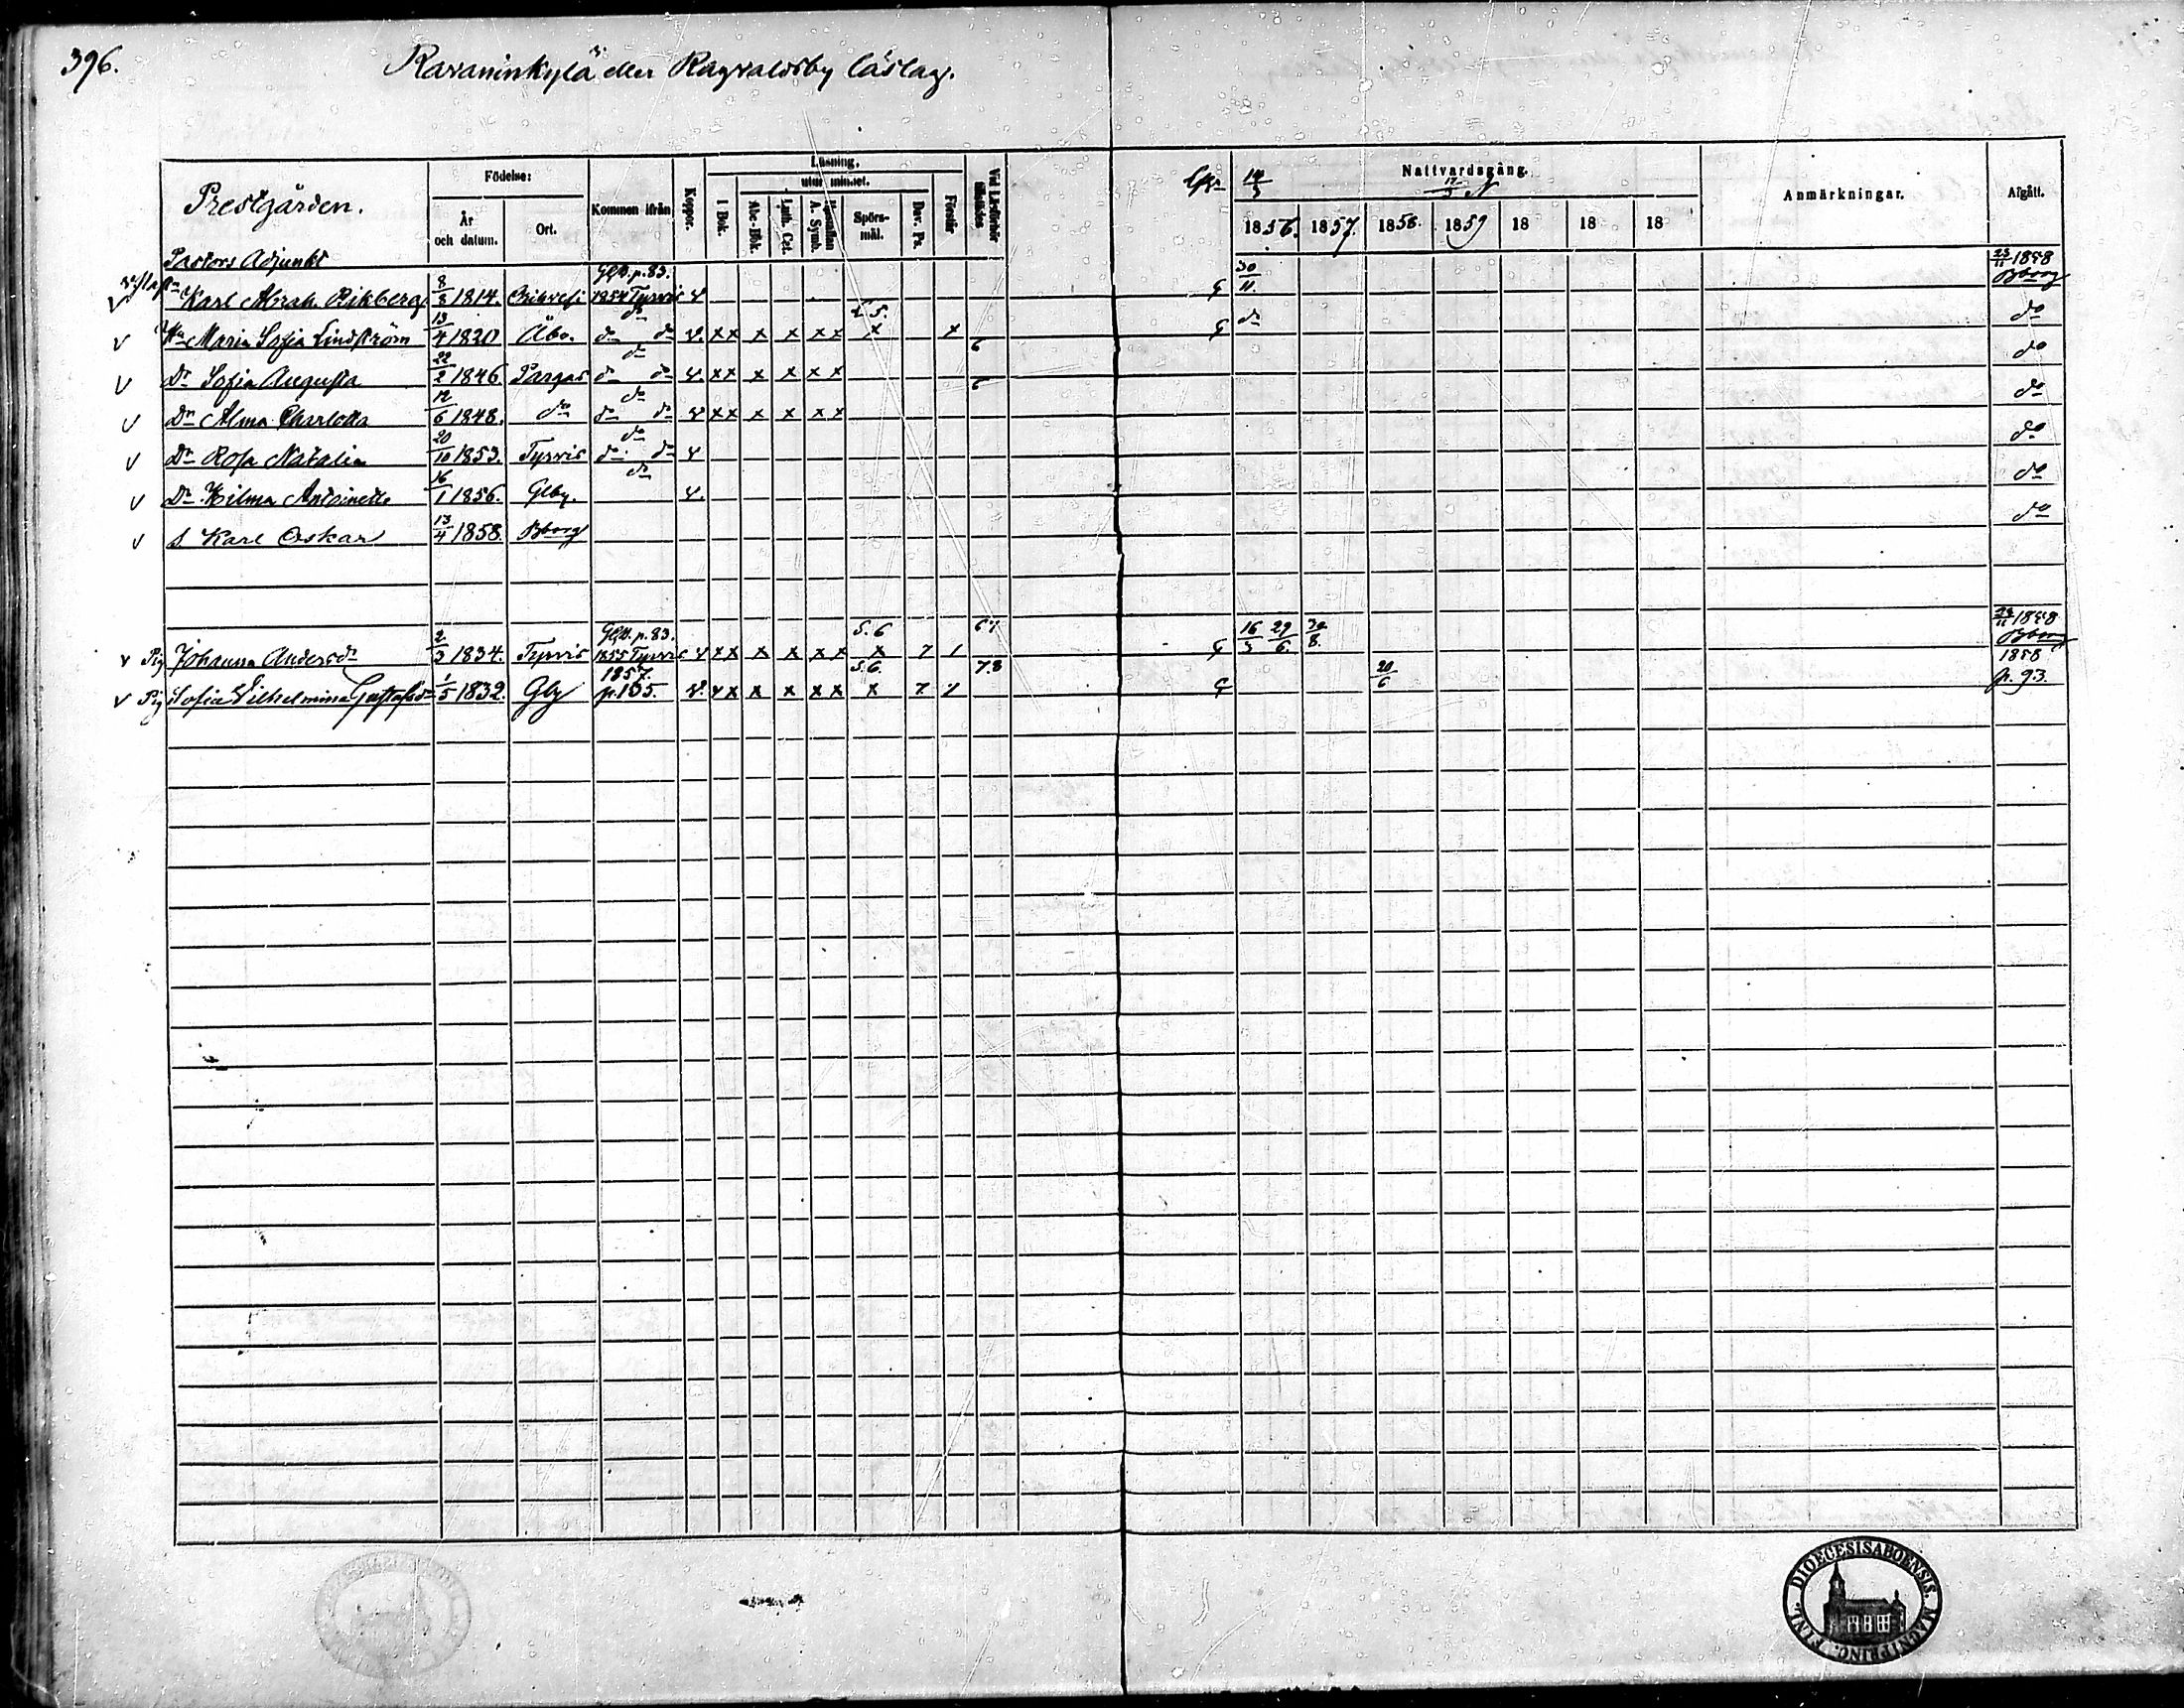 396. Ravaninkylä eller Ragvaldsby läslag.
Prestgården.
Födelse:
År och datum.
Ort.
Kommen ifrån
Koppor.
Läsning,
utur minnet.
I Bok.
Abc-Bok.
Luth. Cat.
Hustaflan A. Symb.
Spörs-mål.
Dav. Ps.
Förstår
Vid Läsförhör
Nattvardsgång.
14/3 17/3 N
1856. 1857. 1858. 1859 18 18 18
Anmärkningar.
Afgått.
Pastors Adjunkt
Karl Abrah. Rikberg 8/8 1814. Orihvesi Glb. p. 83. 1854 Tyrvis v G 30/11. 23/11 1858 Bborg
v Hu Maria Sofia Lindström 13/4 1820 Åbo. do do do v. x x x x x x S. x x 6 G do do
v Dr Sofia Augusta 22/2 1846 Pargas do do do v. x x x x x x 6 do
v Dr Alma Charlotta 12/6 1848. do do do do v x x x x x x do
v Dr Rosa Natalia 20/10 1853. Tyrvis do do do v do
v Dr Hilma Antoinette 16/1 1856. Glby. do v. do
v S Karl Oskar 13/4 1858 Bborg do
v Pig Johanna Andersdr 2/3 1834. Tyrvis Glb. p. 83. 1855 Tyrvis v x x x x x x S. 6 x 7 1 67 G 16/3 29/6. 30/8. 23/11 1858 Bborg
v Pig Sofia Vilhelmina Gustafsdr 1/5 1832. Glby 1857. p. 155. v. v x x x x x S. 6. x 7 7 7.8 G 20/6 1858 p. 93.
FINL. DIOECESIS ABOENSIS. MAGNI PRINC.